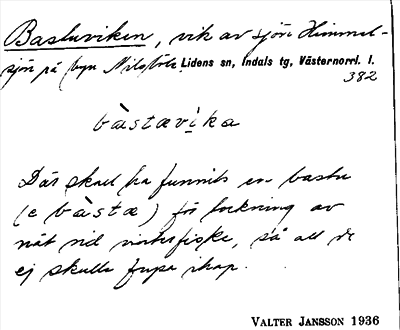 Bastuviken, vik av sjön Himmel-
sjön på byn Nilsböle, Lidens sn, Indals tg, Västernorrl. l.
382
bàstævi̱ka
Där skall ha funnits en bastu
(e bàstæ) för torkning av
nät vid vinterfiske, så att de
ej skulle frysa ihop.
VALTER JANSSON 1936